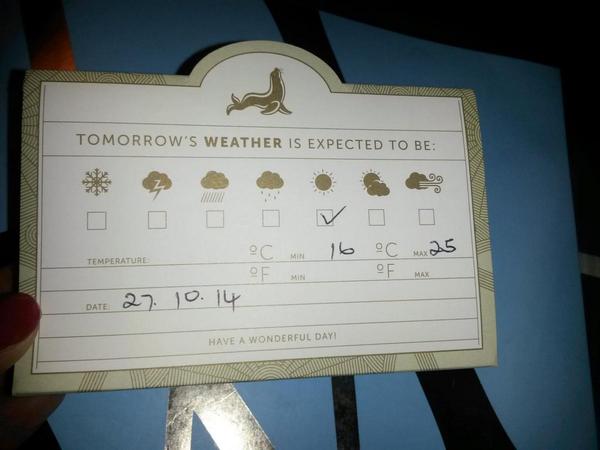 TOMORROW'S WEATHER IS EXPECTED TO BE:
TEMPERATURE: ºC MIN 16 ºC MAX 25
ºF MIN ºF MAX
DATE: 27. 10. 14
HAVE A WONDERFUL DAY!